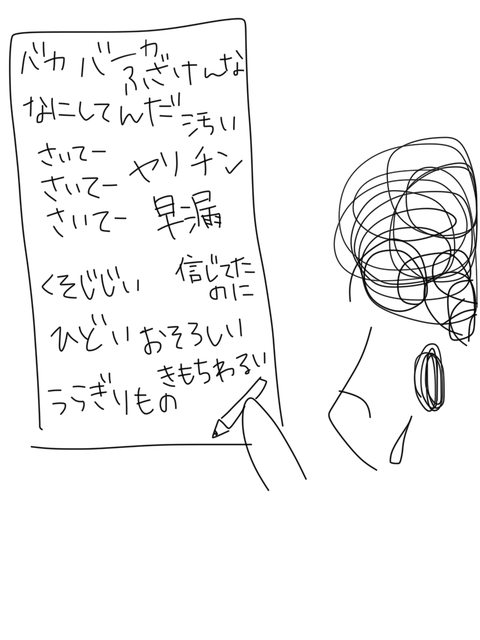 バカ バーカ
ふざけんな
なにしてんだ 汚い
さいてー
さいてー
さいてー
ヤリチン
早漏
くそじじい
信じてた
のに
ひどい おそろしい
きもちわるい
うらぎりもの